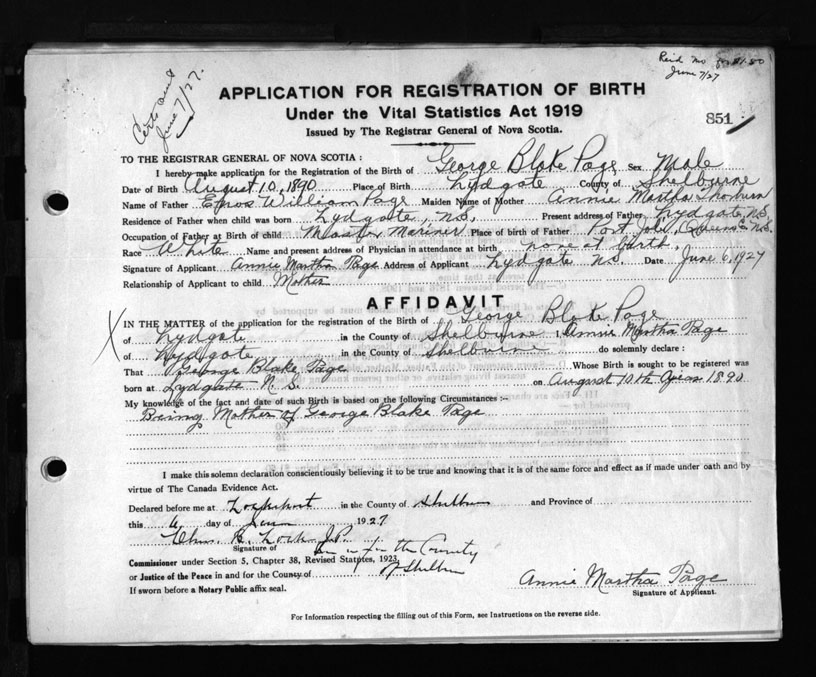 Certs and
June 7/27.
June 7/27
APPLICATION FOR REGISTRATION OF BIRTH
Under the Vital Statistics Act 1919
851
Issued by The Registrar General of Nova Scotia.
TO THE REGISTRAR GENERAL OF NOVA SCOTIA :
I hereby make application for the Registration of the Birth of George Blake Page Sex Male
Date of Birth August 10, 1890 Place of Birth Lydgate County of Shelburne
Name of Father William Page Maiden Name of Mother Annie Martha
Residence of Father when child was born Lydgate, N.S. Present address of Father Lydgate, N.S.
Occupation of Father at Birth of child Master Mariner Place of birth of Father Port Joli, Queens N.S.
Race White Name and present address of Physician in attendance at birth none at birth.
Signature of Applicant Annie Martha Page Address of Applicant Lydgate N.S. Date June 6, 1927
Relationship of Applicant to child Mother
AFFIDAVIT
IN THE MATTER of the application for the registration of the Birth of George Blake Page
of Lydgate in the County of Shelburne I, Annie Martha Page
of Lydgate in the County of Shelburne do solemnly declare :
That George Blake Page Whose Birth is sought to be registered was
born at Lydgate N.S. on August 10th 1890
My knowledge of the fact and date of such Birth is based on the following Circumstances :-
Being Mother of George Blake Page
I make this solemn declaration conscientiously believing it to be true and knowing that it is of the same force and effect as if made under oath and by
virtue of The Canada Evidence Act.
Declared before me at Lockeport in the County of Shelburne and Province of
this 6 day of June 1927
J.P.
Signature of in & for the County
Commissioner under Section 5, Chapter 38, Revised Statutes, 1923,
or Justice of the Peace in and for the County of of Shelburne
If sworn before a Notary Public affix seal.
Annie Martha Page
Signature of Applicant.
For Information respecting the filling out of this Form, see Instructions on the reverse side.